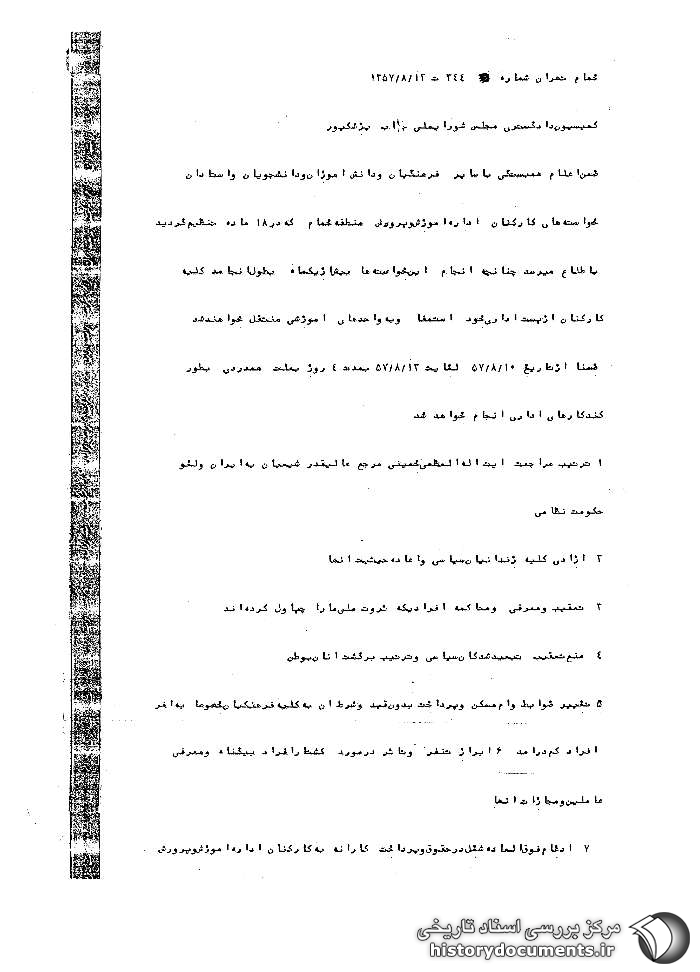 خمام تهران شماره ۳٤٤ ت ۱۳۵۷/۸/۱۳
کمیسیون دادگستری مجلس شورایملی جناب پزشکپور
ضمن اعلام همبستگی با سایر فرهنگیان ودانش اموزان ودانشجویان واستادان
خواسته‌های کارکنان اداره اموزش وپرورش منطقه خمام که در ۱۸ ماده تنظیم گردید
باطلاع میرسد چنانچه انجام این خواسته‌ها بیش از یکماه بطول انجامد کلیه
کارکنان از پست اداری خود استعفا وبه واحدهای اموزشی منتقل خواهند شد
ضمنا از تاریخ ۵۷/۸/۱۰ لغایت ۵۷/۸/۱۳ بمدت ٤ روز بعلت همدردی بطور
کند کارهای اداری انجام خواهد شد
۱ ترتیب مراجعت ایت اله العظمی خمینی مرجع عالیقدر شیعیان به ایران ولغو
حکومت نظامی
۲ ازادی کلیه زندانیان سیاسی واعاده حیثیت انها
۳ تعقیب ومعرفی ومحاکمه افرادیکه ثروت ملی مارا چپاول کرده اند
٤ منع تعقیب تبعید شدگان سیاسی وترتیب برگشت انان بوطن
۵ تغییر شرایط وام مسکن وپرداخت بدون قید وشرط ان به کلیه فرهنگیان خصوصا به اقر
افراد کم درامد ۶ ابراز تنفر وتاثر در مورد کشتار افراد بیگناه ومعرفی
عاملین ومجازات انها
۷ ادغام فوق العاده شغل در حقوق وپرداخت کارانه به کارکنان اداره اموزش وپرورش
مرکز بررسی اسناد تاریخی
historydocuments.ir